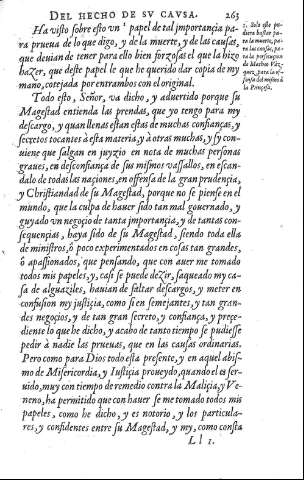 DEL HECHO DE SV CAVSA. 263
Ha visto sobre esto vn 1 papel de tal importançia pa-
ra prueua de lo que digo, y de la muerte, y de las causas,
que deuian de tener para ello bien forçosas el que la hizo
hazer, que deste papel le que he querido dar copia de my
mano, cotejada por entrambos con el original.
Todo esto, Señor, va dicho, y aduertido porque su
Magestad entienda las prendas, que yo tengo para my
descargo, y quan llenas estan estas de muchas confianças, y
secretos tocantes à esta materia, y à otras muchas, y si con-
uiene que salgan en juyzio en nota de muchas personas
graues, en desconfiança de sus mismos vassallos, en escan-
dalo de todas las naciones, en offensa de la gran prudençia,
y Christiandad de su Magestad, porque no se piense en el
mundo, que la culpa de hauer sido tan mal gouernado, y
guyado vn negocio de tanta importançia, y de tantas con-
sequençias, haya sido de su Magestad, siendo toda ella
de ministros, ò poco experimentados en cosas tan grandes,
ò apassionados, que pensando, que con auer me tomado
todos mis papeles, y, casi se puede dezir, saqueado my ca-
sa de alguaziles, hauian de faltar descargos, y meter en
confusion my justiçia, como si en semejantes, y tan gran-
des negocios, y de tan gran secreto, y confiança, y preçe-
diente lo que he dicho, y acabo de tanto tiempo se pudiesse
pedir à nadie las prueuas, que en las causas ordinarias.
Pero como para Dios todo esta presente, y en aquel abis-
mo de Misericordia, y Iustiçia proueydo, quando el es ser-
uido, muy con tiempo de remedio contra la Maliçia, y Ve-
neno, ha permitido que con hauer se me tomado todos mis
papeles, como he dicho, y es notorio, y los particula-
res, y confidentes entre su Magestad, y my, como consta
Ll 1.
1. Solo este po-
diera bastar pa-